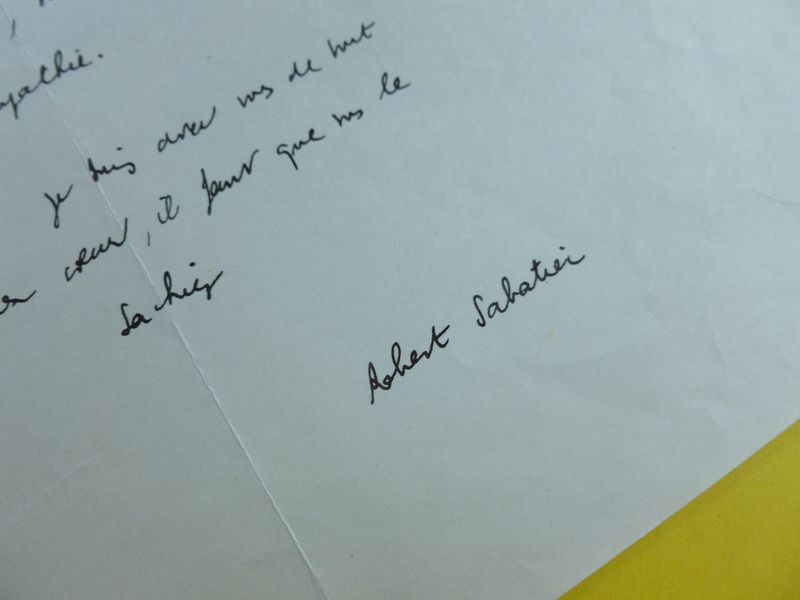 mpathie.
je suis avec vs de tout
mon cœur, il faut que vs le
sachiez
Robert Sabatier